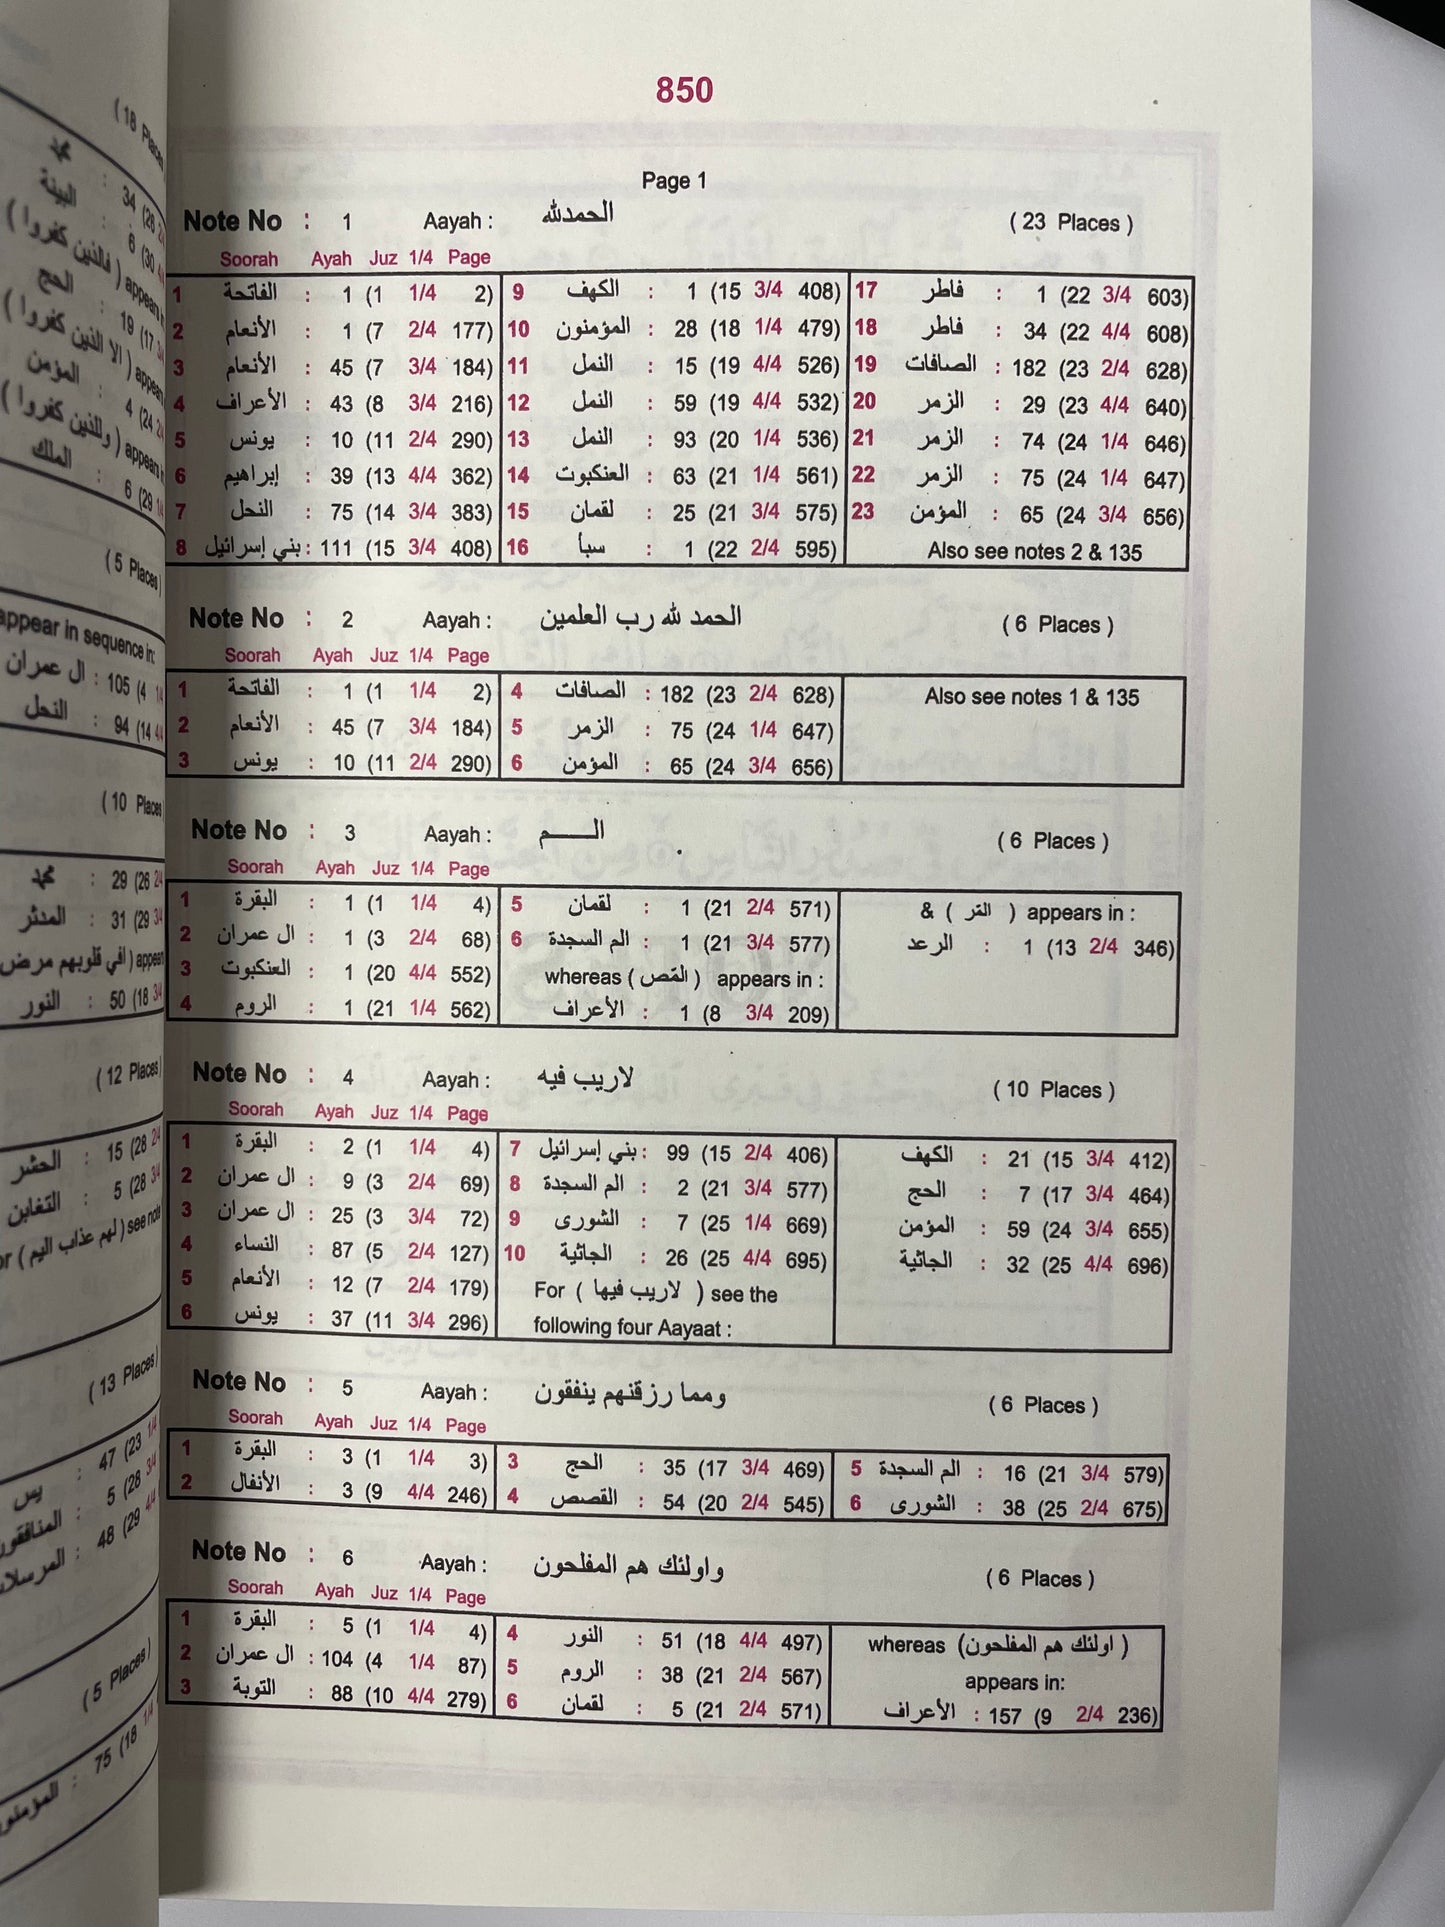 850
Page 1
Note No : 1 Aayah : الحمدلله ( 23 Places )
Soorah Ayah Juz 1/4 Page
1 الفاتحة : 1 (1 1/4 2)
2 الأنعام : 1 (7 2/4 177)
3 الأنعام : 45 (7 3/4 184)
4 الأعراف : 43 (8 3/4 216)
5 يونس : 10 (11 2/4 290)
6 إبراهيم : 39 (13 4/4 362)
7 النحل : 75 (14 3/4 383)
8 بني إسرائيل : 111 (15 3/4 408)
9 الكهف : 1 (15 3/4 408)
10 المؤمنون : 28 (18 1/4 479)
11 النمل : 15 (19 4/4 526)
12 النمل : 59 (19 4/4 532)
13 النمل : 93 (20 1/4 536)
14 العنكبوت : 63 (21 1/4 561)
15 لقمان : 25 (21 3/4 575)
16 سبأ : 1 (22 2/4 595)
17 فاطر : 1 (22 3/4 603)
18 فاطر : 34 (22 4/4 608)
19 الصافات : 182 (23 2/4 628)
20 الزمر : 29 (23 4/4 640)
21 الزمر : 74 (24 1/4 646)
22 الزمر : 75 (24 1/4 647)
23 المؤمن : 65 (24 3/4 656)
Also see notes 2 & 135
Note No : 2 Aayah : الحمد لله رب العلمين ( 6 Places )
Soorah Ayah Juz 1/4 Page
1 الفاتحة : 1 (1 1/4 2)
2 الأنعام : 45 (7 3/4 184)
3 يونس : 10 (11 2/4 290)
4 الصافات : 182 (23 2/4 628)
5 الزمر : 75 (24 1/4 647)
6 المؤمن : 65 (24 3/4 656)
Also see notes 1 & 135
Note No : 3 Aayah : الـــــم ( 6 Places )
Soorah Ayah Juz 1/4 Page
1 البقرة : 1 (1 1/4 4)
2 ال عمران : 1 (3 2/4 68)
3 العنكبوت : 1 (20 4/4 552)
4 الروم : 1 (21 1/4 562)
5 لقمان : 1 (21 2/4 571)
6 الم السجدة : 1 (21 3/4 577)
whereas ( المص ) appears in :
الأعراف : 1 (8 3/4 209)
& ( المر ) appears in :
الرعد : 1 (13 2/4 346)
Note No : 4 Aayah : لاريب فيه ( 10 Places )
Soorah Ayah Juz 1/4 Page
1 البقرة : 2 (1 1/4 4)
2 ال عمران : 9 (3 2/4 69)
3 ال عمران : 25 (3 3/4 72)
4 النساء : 87 (5 2/4 127)
5 الأنعام : 12 (7 2/4 179)
6 يونس : 37 (11 3/4 296)
7 بني إسرائيل : 99 (15 2/4 406)
8 الم السجدة : 2 (21 3/4 577)
9 الشورى : 7 (25 1/4 669)
10 الجاثية : 26 (25 4/4 695)
For ( لاريب فيها ) see the
following four Aayaat :
الكهف : 21 (15 3/4 412)
الحج : 7 (17 3/4 464)
المؤمن : 59 (24 3/4 655)
الجاثية : 32 (25 4/4 696)
Note No : 5 Aayah : ومما رزقنهم ينفقون ( 6 Places )
Soorah Ayah Juz 1/4 Page
1 البقرة : 3 (1 1/4 3)
2 الأنفال : 3 (9 4/4 246)
3 الحج : 35 (17 3/4 469)
4 القصص : 54 (20 2/4 545)
5 الم السجدة : 16 (21 3/4 579)
6 الشورى : 38 (25 2/4 675)
Note No : 6 Aayah : واولئك هم المفلحون ( 6 Places )
Soorah Ayah Juz 1/4 Page
1 البقرة : 5 (1 1/4 4)
2 ال عمران : 104 (4 1/4 87)
3 التوبة : 88 (10 4/4 279)
4 النور : 51 (18 4/4 497)
5 الروم : 38 (21 2/4 567)
6 لقمان : 5 (21 2/4 571)
whereas (اولئك هم المفلحون )
appears in:
الأعراف : 157 (9 2/4 236)